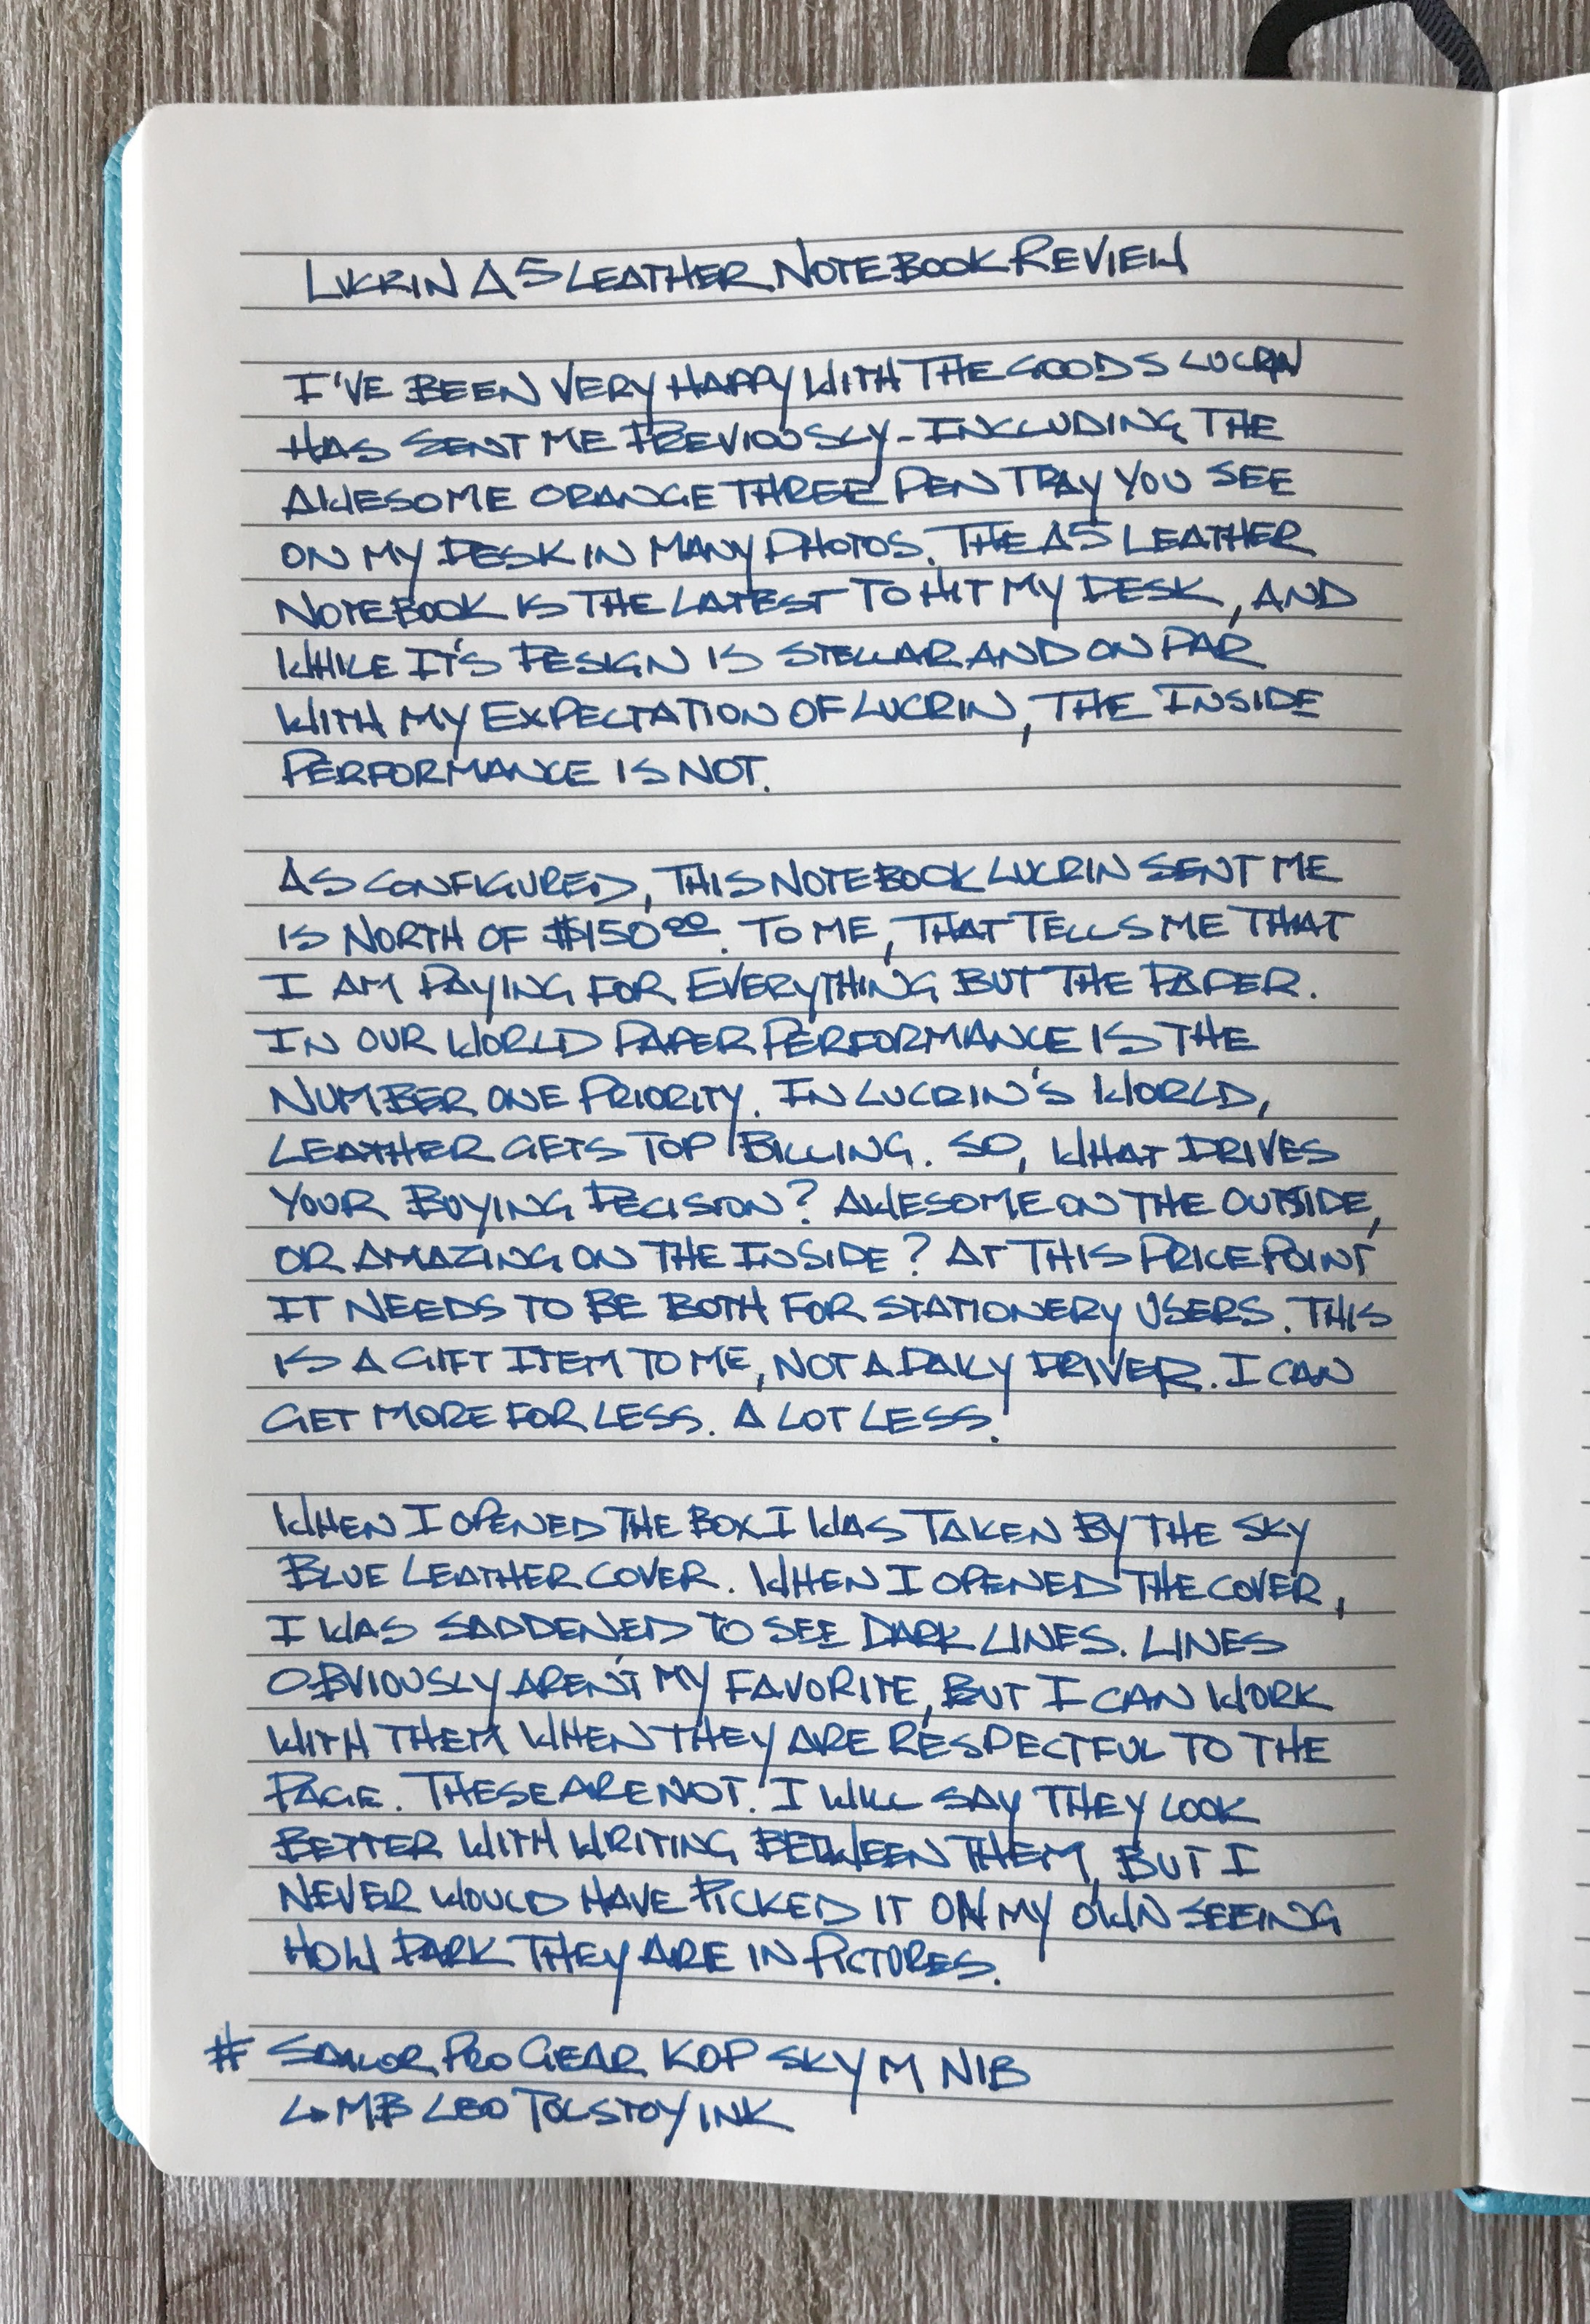 LUCRIN A5 LEATHER NOTEBOOK REVIEW
I'VE BEEN VERY HAPPY WITH THE GOODS LUCRIN
HAS SENT ME PREVIOUSLY - INCLUDING THE
AWESOME ORANGE THREE PEN TRAY YOU SEE
ON MY DESK IN MANY PHOTOS. THE A5 LEATHER
NOTEBOOK IS THE LATEST TO HIT MY DESK, AND
WHILE IT'S DESIGN IS STELLAR AND ON PAR
WITH MY EXPECTATION OF LUCRIN, THE INSIDE
PERFORMANCE IS NOT.
AS CONFIGURED, THIS NOTEBOOK LUCRIN SENT ME
IS NORTH OF $150.00. TO ME, THAT TELLS ME THAT
I AM PAYING FOR EVERYTHING BUT THE PAPER.
IN OUR WORLD PAPER PERFORMANCE IS THE
NUMBER ONE PRIORITY. IN LUCRIN'S WORLD,
LEATHER GETS TOP BILLING. SO, WHAT DRIVES
YOUR BUYING DECISION? AWESOME ON THE OUTSIDE,
OR AMAZING ON THE INSIDE? AT THIS PRICE POINT
IT NEEDS TO BE BOTH FOR STATIONERY USERS. THIS
IS A GIFT ITEM TO ME, NOT A DAILY DRIVER. I CAN
GET MORE FOR LESS. A LOT LESS.
WHEN I OPENED THE BOX I WAS TAKEN BY THE SKY
BLUE LEATHER COVER. WHEN I OPENED THE COVER,
I WAS SADDENED TO SEE DARK LINES. LINES
OBVIOUSLY AREN'T MY FAVORITE, BUT I CAN WORK
WITH THEM WHEN THEY ARE RESPECTFUL TO THE
PAGE. THESE ARE NOT. I WILL SAY THEY LOOK
BETTER WITH WRITING BETWEEN THEM, BUT I
NEVER WOULD HAVE PICKED IT ON MY OWN SEEING
HOW DARK THEY ARE IN PICTURES.
# SAILOR PRO GEAR KOP SKY M NIB
↳ MB LEO TOLSTOY INK